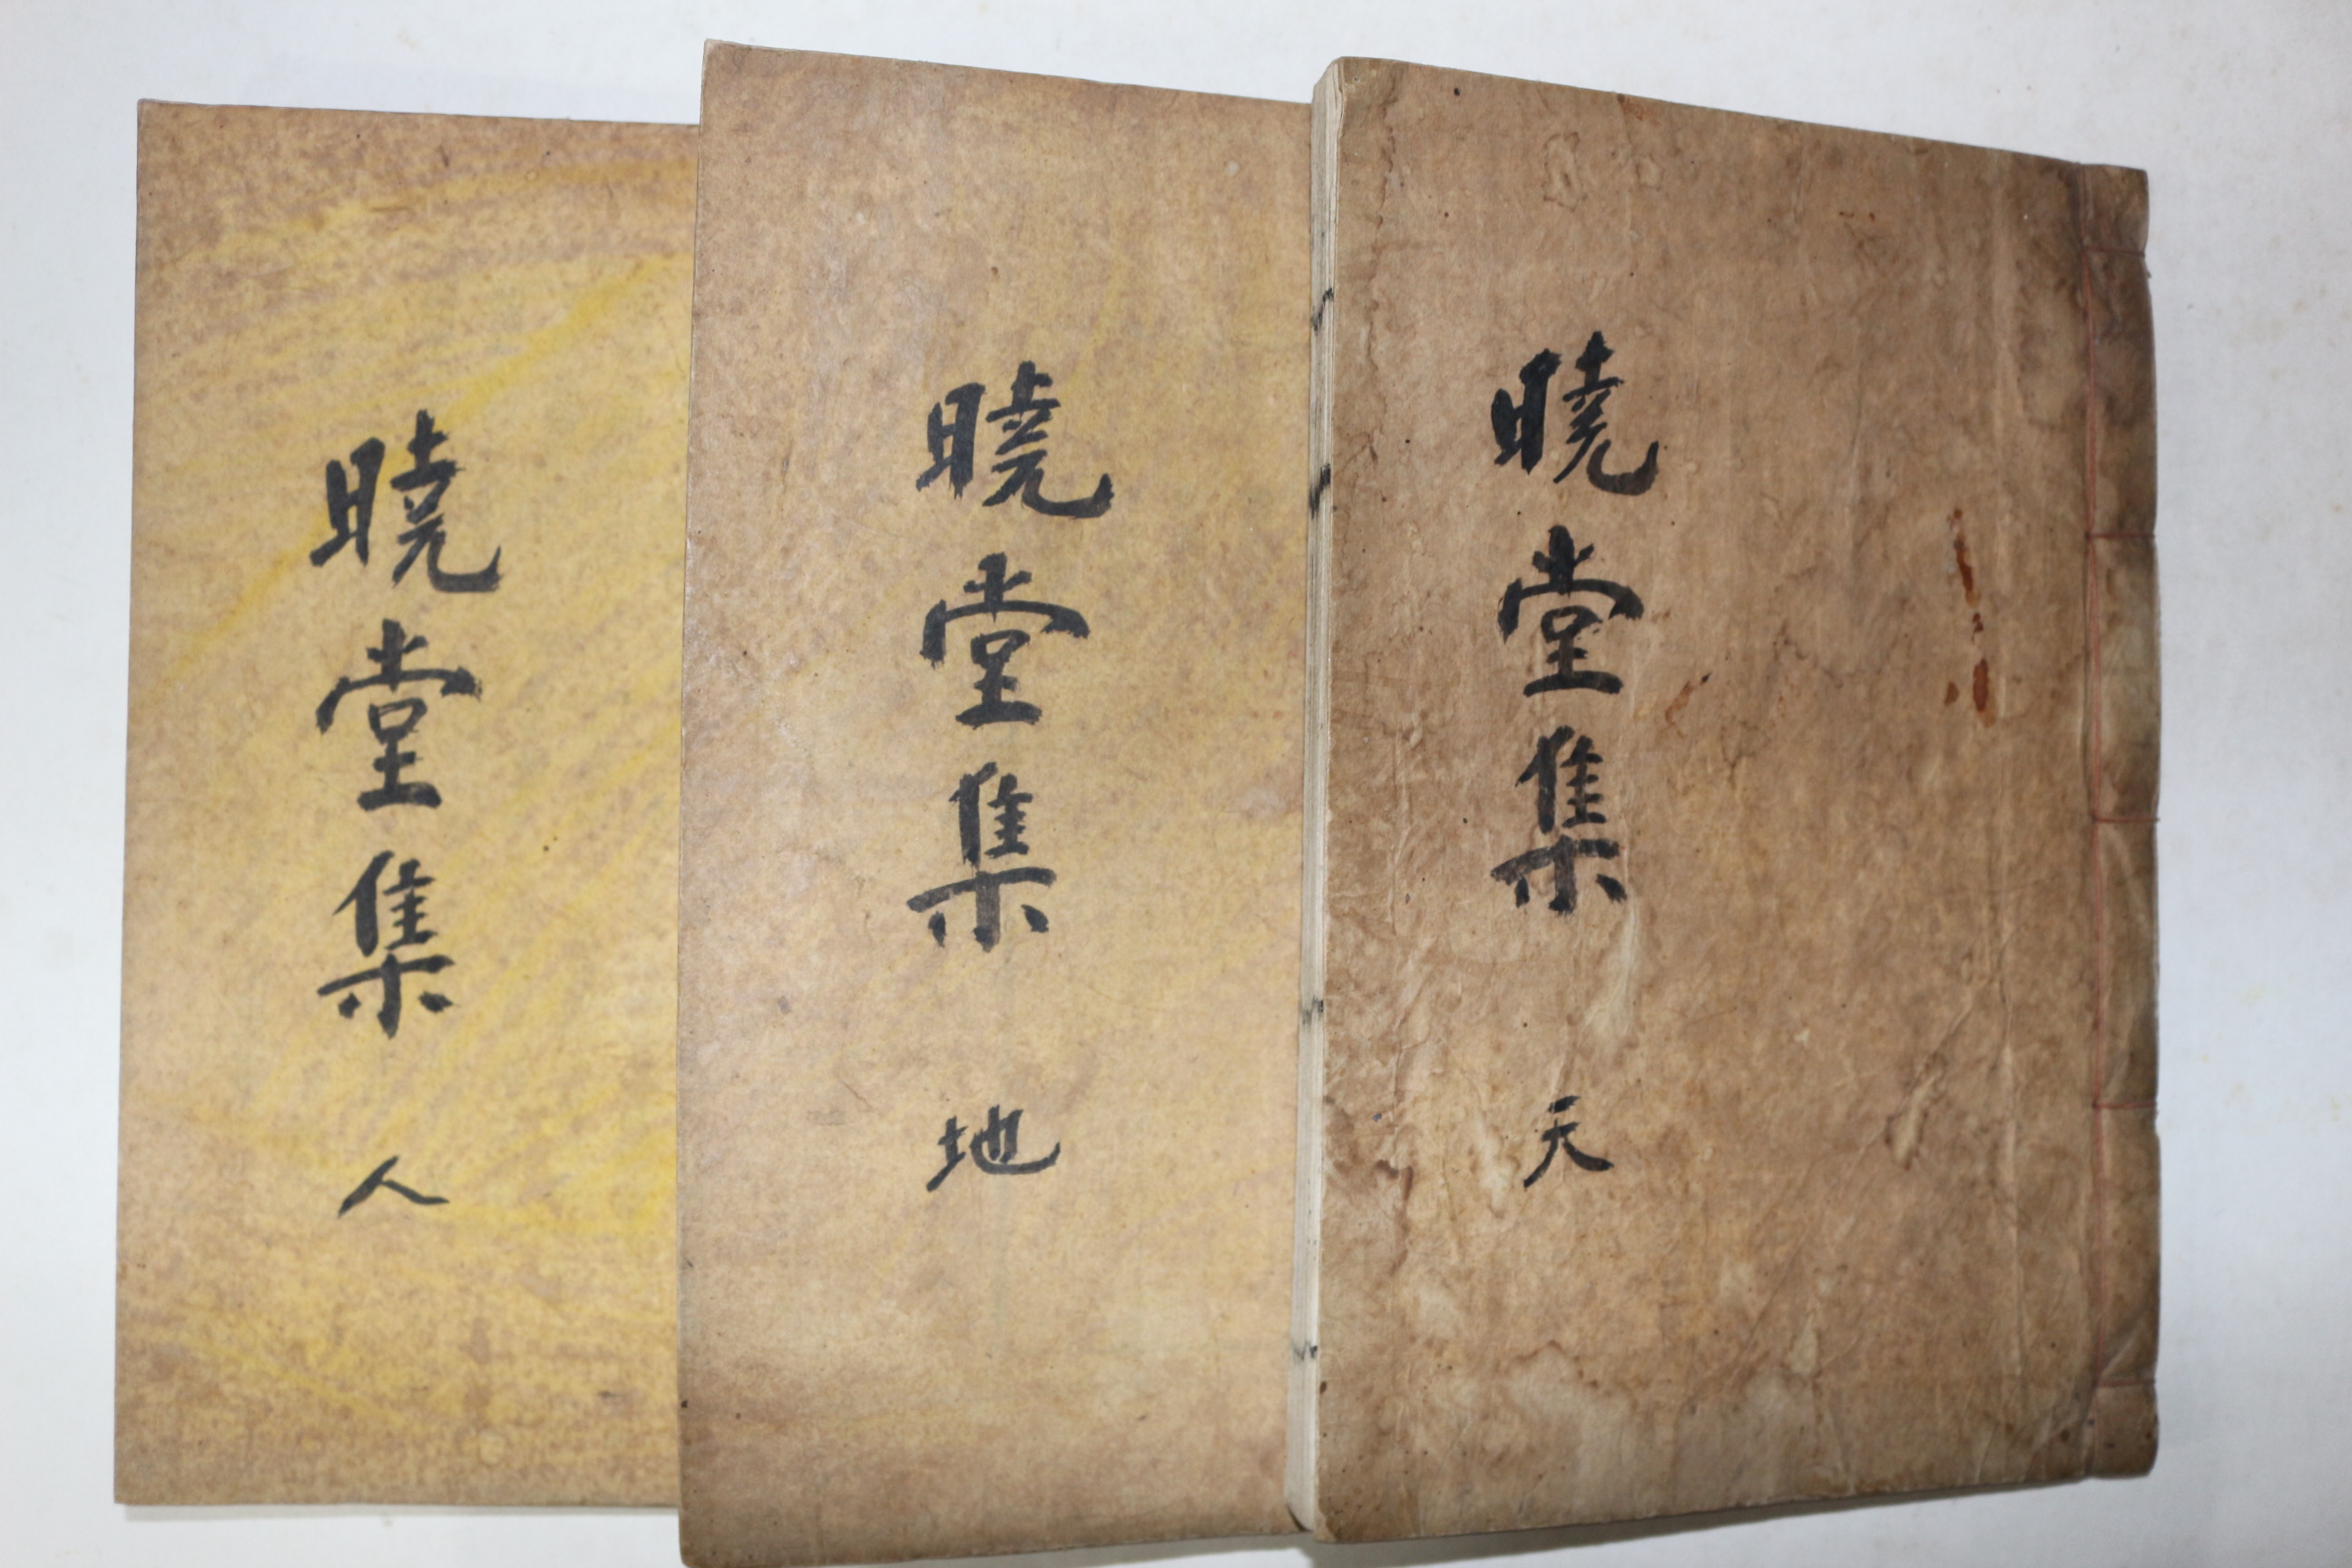 曉堂集 天
曉堂集 地
曉堂集 人